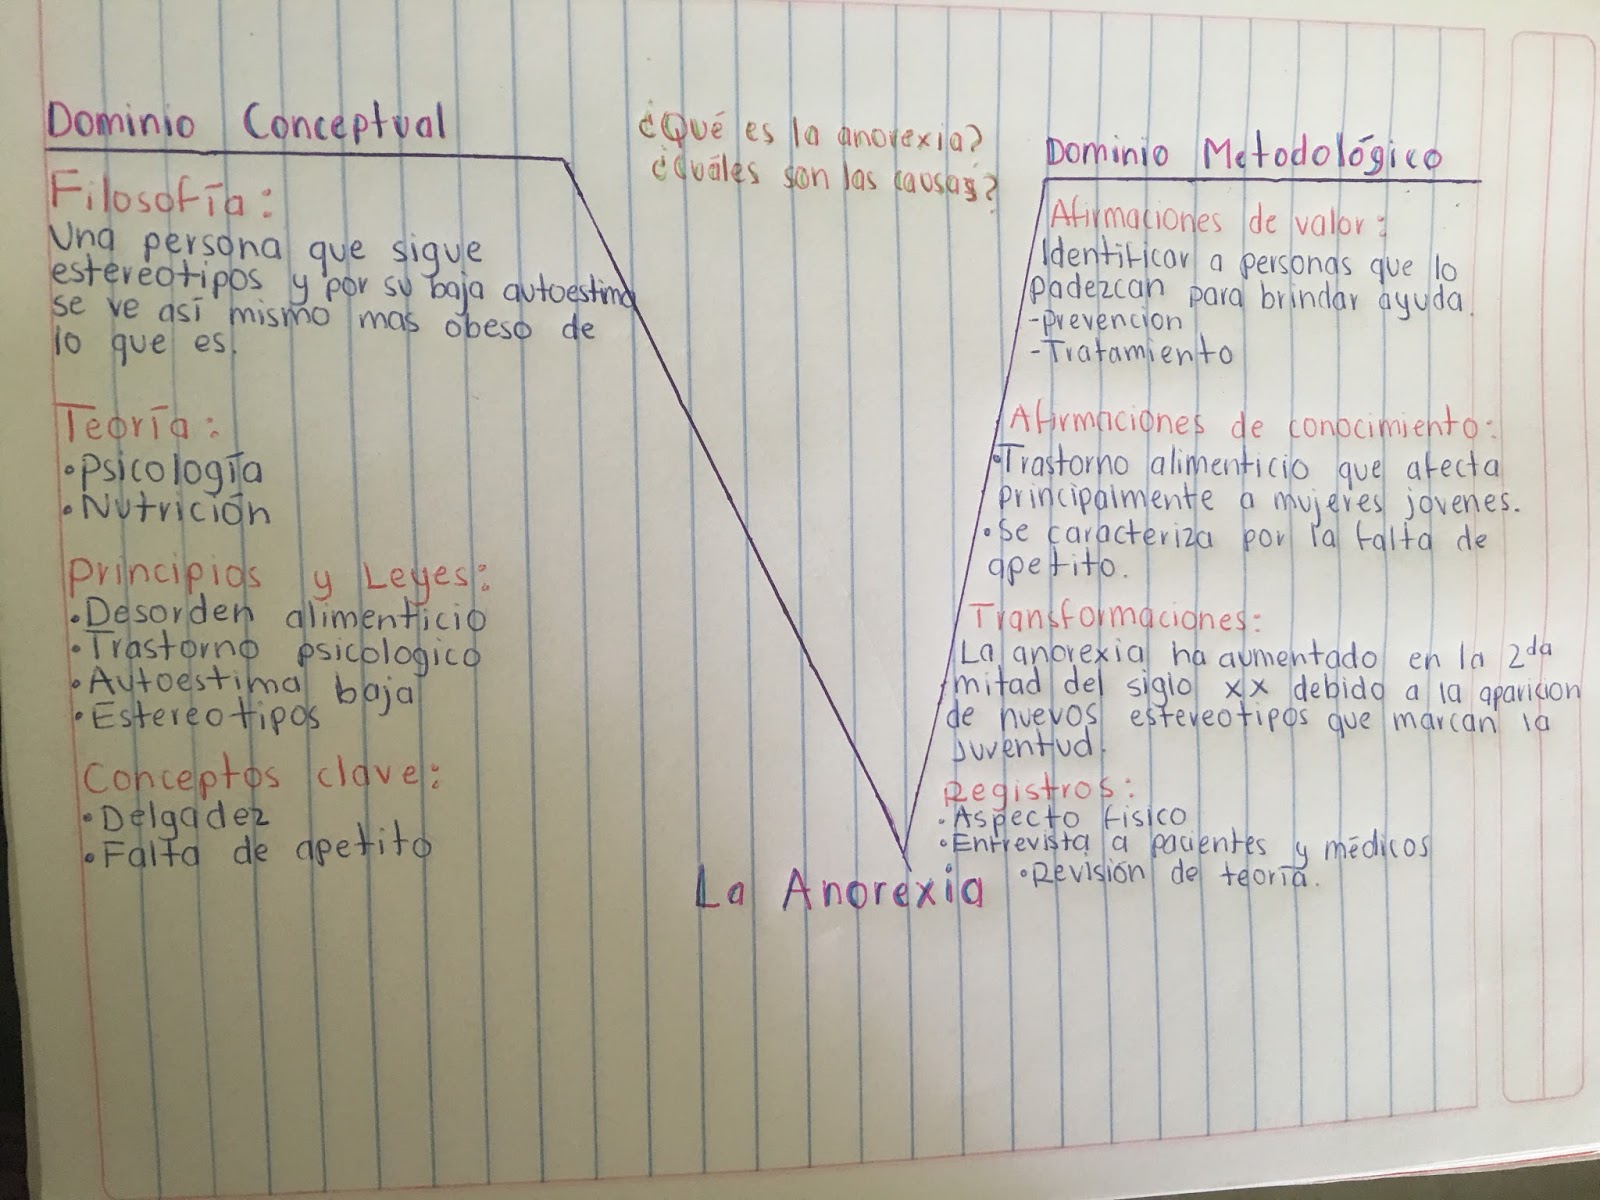 Dominio Conceptual
Filosofía:
Una persona que sigue
estereotipos y por su baja autoestima
se ve así mismo mas obeso de
lo que es.
Teoría:
•Psicología
•Nutrición
Principios y Leyes:
•Desorden alimenticio
•Trastorno psicologico
•Autoestima baja
•Estereotipos
Conceptos clave:
•Delgadez
•Falta de apetito
¿Qué es la anorexia?
¿Cuáles son las causas?
La Anorexia
Dominio Metodológico
Afirmaciones de valor:
Identificar a personas que lo
padezcan para brindar ayuda.
-Prevencion
-Tratamiento
Afirmaciones de conocimiento:
•Trastorno alimenticio que afecta
principalmente a mujeres jovenes.
•Se caracteriza por la falta de
apetito.
Transformaciones:
La anorexia ha aumentado en la 2da
mitad del siglo xx debido a la aparicion
de nuevos estereotipos que marcan la
juventud.
Registros:
•Aspecto fisico
•Entrevista a pacientes y médicos
•Revisión de teoría.